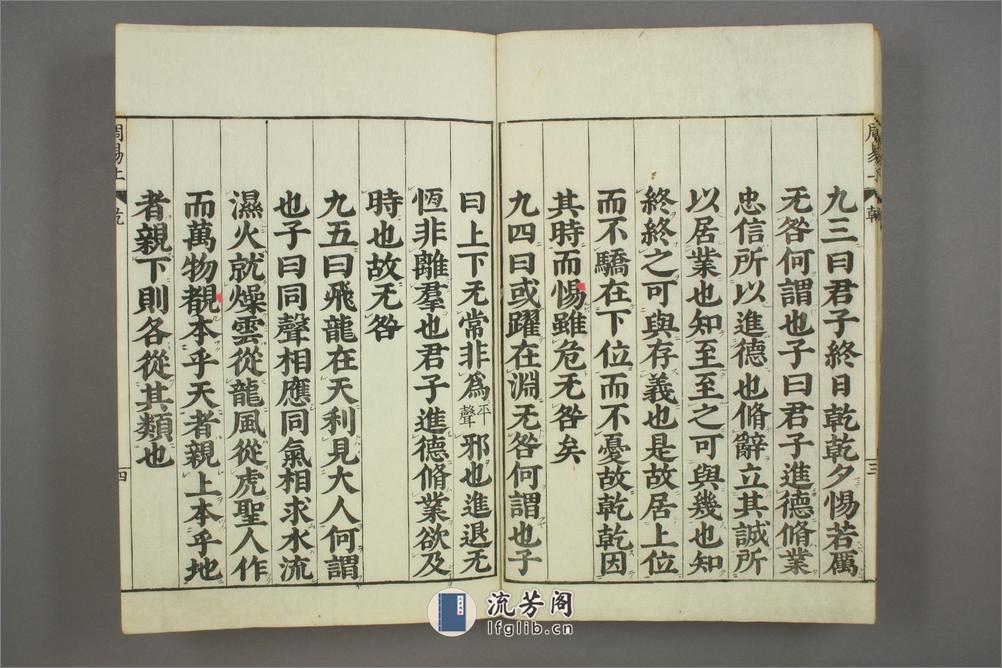 周易上
乾
三
九三曰君子終日乾乾夕惕若厲
无咎何謂也子曰君子進德脩業
忠信所以進德也脩辭立其誠所
以居業也知至至之可與幾也知
終終之可與存義也是故居上位
而不驕在下位而不憂故乾乾因
其時而惕雖危无咎矣
九四曰或躍在淵无咎何謂也子
曰上下无常非爲平聲邪也進退无
恆非離羣也君子進德脩業欲及
時也故无咎
九五曰飛龍在天利見大人何謂
也子曰同聲相應同氣相求水流
濕火就燥雲從龍風從虎聖人作
而萬物覩本乎天者親上本乎地
者親下則各從其類也
周易上
四
流芳阁
lfglib.cn